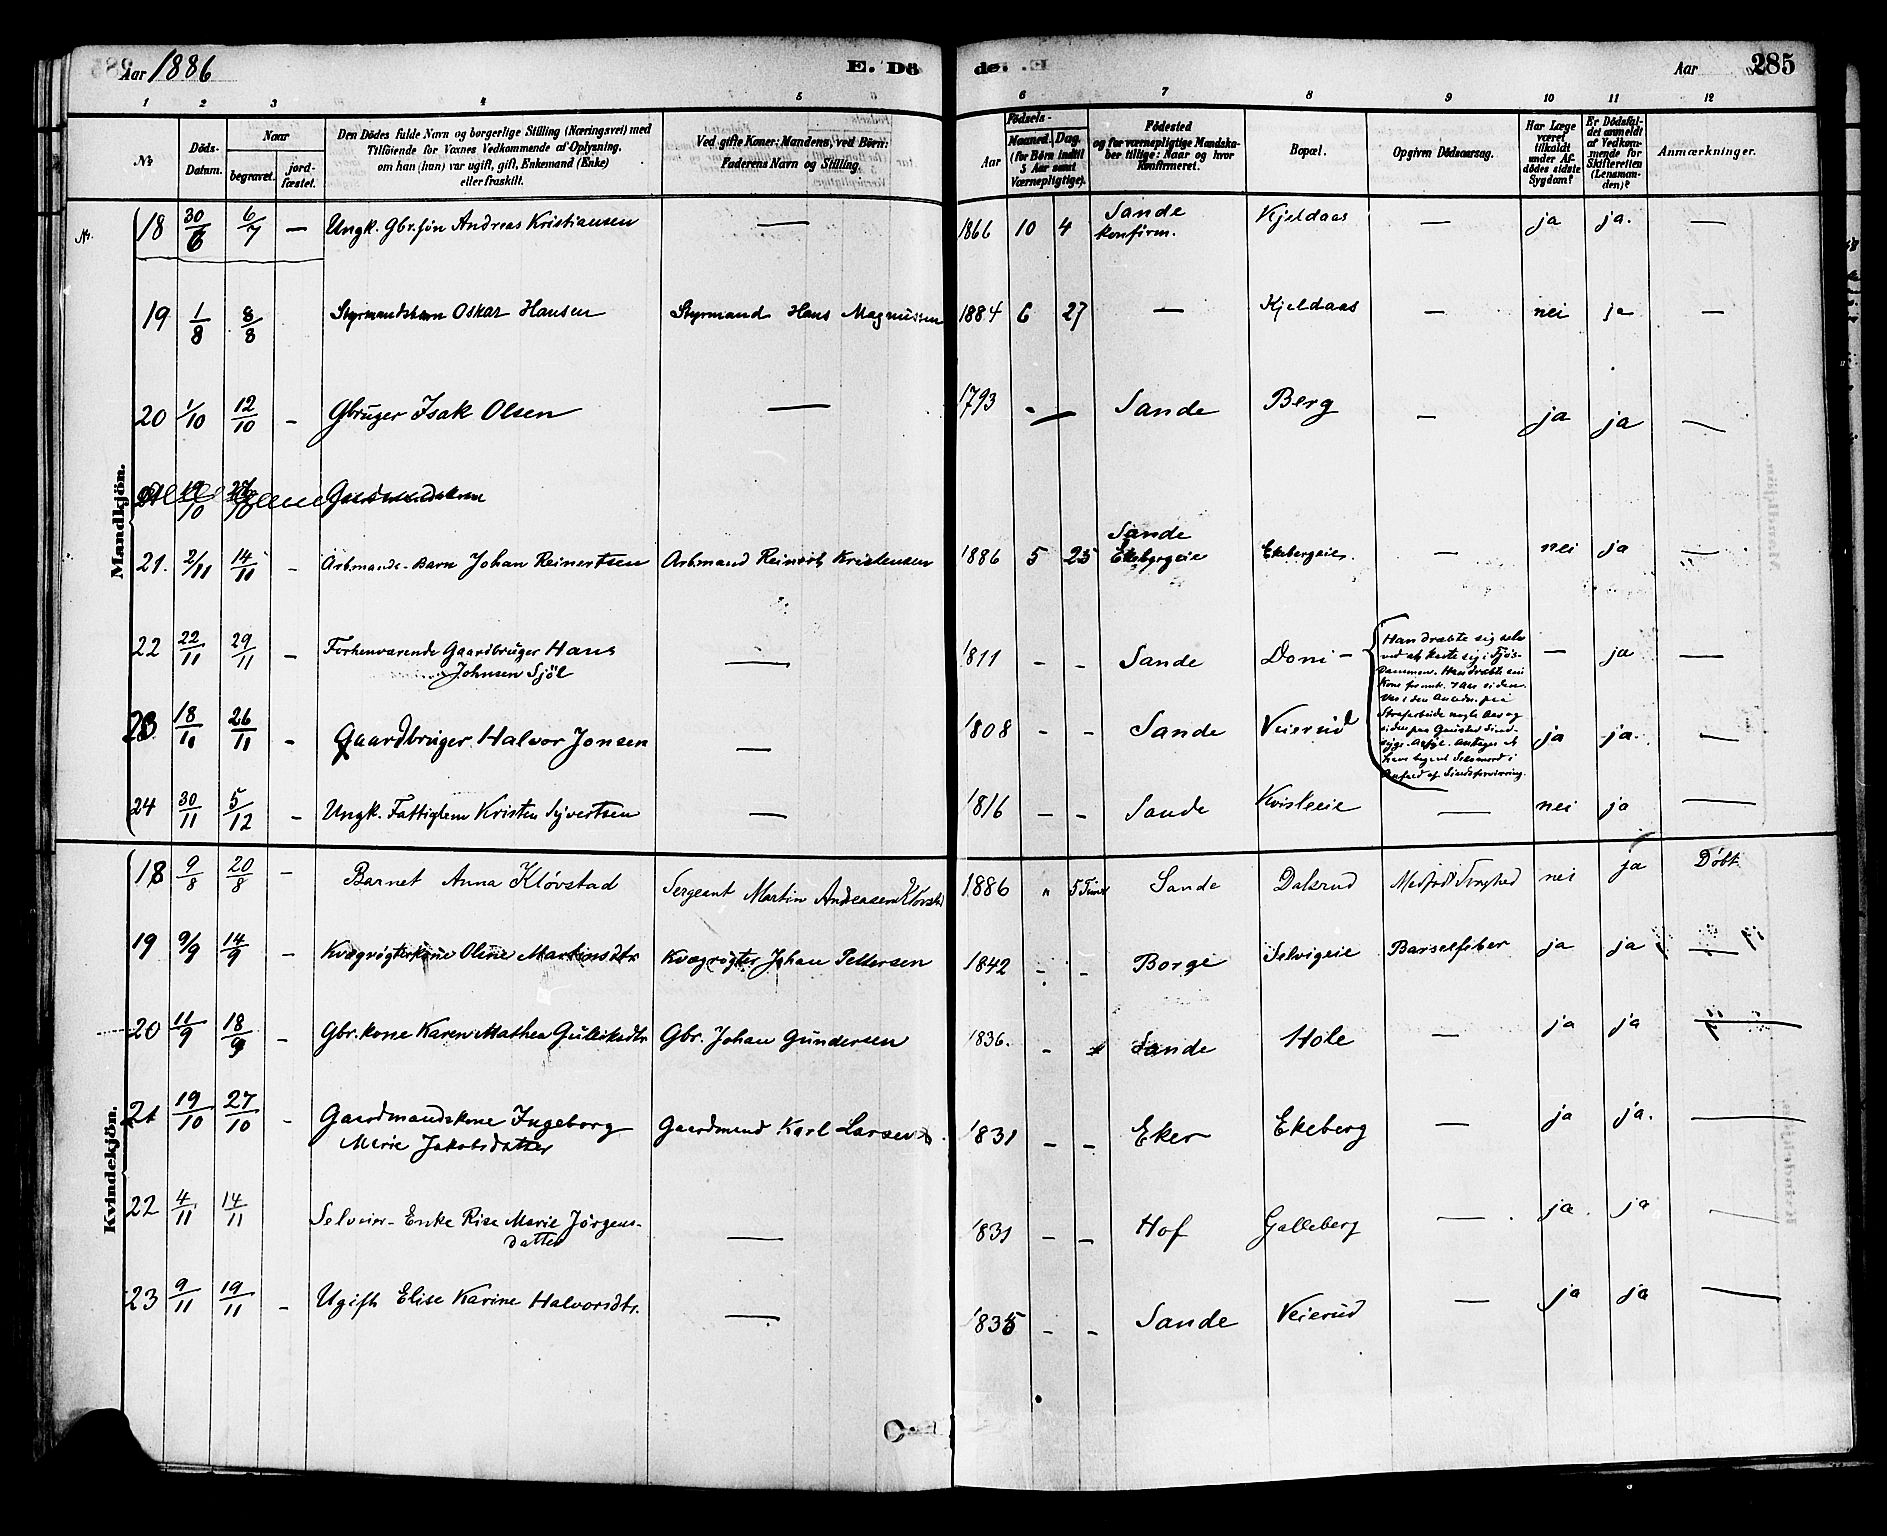 Aar 1886 E. Dö de. Aar 285
1 2 3 4 5 6 7 8 9 10 11 12
No
Döds-
Datum.
Naar
begravet.
jord-
fæstet.
Den Dödes fulde Navn og borgerlige Stilling (Næringsvei) med
Tilföiende for Voxnes Vedkommende af Oplysning,
om han (hun) var ugift, gift, Enkemand (Enke)
eller fraskilt.
Ved gifte Koner: Mandens, ved Börn:
Faderens Navn og Stilling.
Födsels-
Aar
Maaned. Dag.
(for Börn indtil
5 Aar samt
Værnepligtige).
Födested
og for værnepligtige Mandska-
ber tillige: Naar og hvor
Konfirmeret.
Bopæl.
Opgiven Dödsaarsag.
Har Læge
været
tilkaldt
under Af-
dödes sidste
Sygdom?
Er Dödsfal-
det anmeldt
af Vedkom-
mende for
Skifteretten
(Lensman-
den)?
Anmærkninger.
Mandkjön.
18 30/6 6/7 — Ungk. Gbr.søn Andreas Kristiansen — 1866 10 4 Sande konfirm. Kjeldaas — ja ja. —
19 1/8 8/8 Styrmandsbarn Oskar Hansen Styrmand Hans Magnussen 1884 6 27 — Kjeldaas — nei ja —
20 1/10 12/10 - Gbruger Isak Olsen — 1793 - Sande Berg — ja ja —
Gaardmandskone
21. 2/11 14/11 - Arbmands-Barn Johan Reinertsen Arbmand Reinert Kristensen 1886 5 25 Sande Ekebergeie Ekebergeie. — nei ja —
22 22/11 29/11 - Forhenværende Gaardbruger Hans
Johnsen Sjöl — 1811 - - Sande Doni - — ja —
Han dræbte sig selv
ved at kaste sig i
Dammen. Han dræbte sin
Kone
Strafarbeide nogle Aar og
siden paa Gaustad Sind-
syge-Asyl. Antages at
have begaaet Selvmord i
Anfald af Sindsforvirring.
23 18/11 26/11 - Gaardbruger Halvor Jonsen — 1808 - - Sande Veierud ja ja. —
24 30/11 5/12 - Ungk. Fattiglem Kristen Syvertsen — 1816 - - Sande Kvisleeie — nei ja —
Kvindekjön.
18 9/8 20/8 - Barnet Anna Kløvstad Sergeant Martin Andreasen Kløvstad 1886 " 5 Timer Sande Dalsrud Medfødt Svaghed nei ja Døbt
19 9/9 14/9 - Kvægrøgterkone Oline Martinsdtr Kvægrøgter Johan Pettersen 1842 - - Borge Selvigeie Barselfeber ja ja —
20 11/9 18/9 - Gbr. kone Karen Mathea Gulliksdtr Gbr. Johan Gundersen 1836. - Sande Hole — ja ja —
21 19/10 27/10 - Gaardmandskone Ingeborg
Marie Jakobsdatter Gaardmand Karl Larsen 1831 - - Eker Ekeberg — ja ja. —
22 4/11 14/11 Selveier-Enke Rise Marie Jörgens-
datter — 1831 - - Hof Galleberg — ja ja —
23 9/11 19/11 - Ugift Elise Karine Halvorsdtr. — 1835 - - Sande Veierud — ja ja —